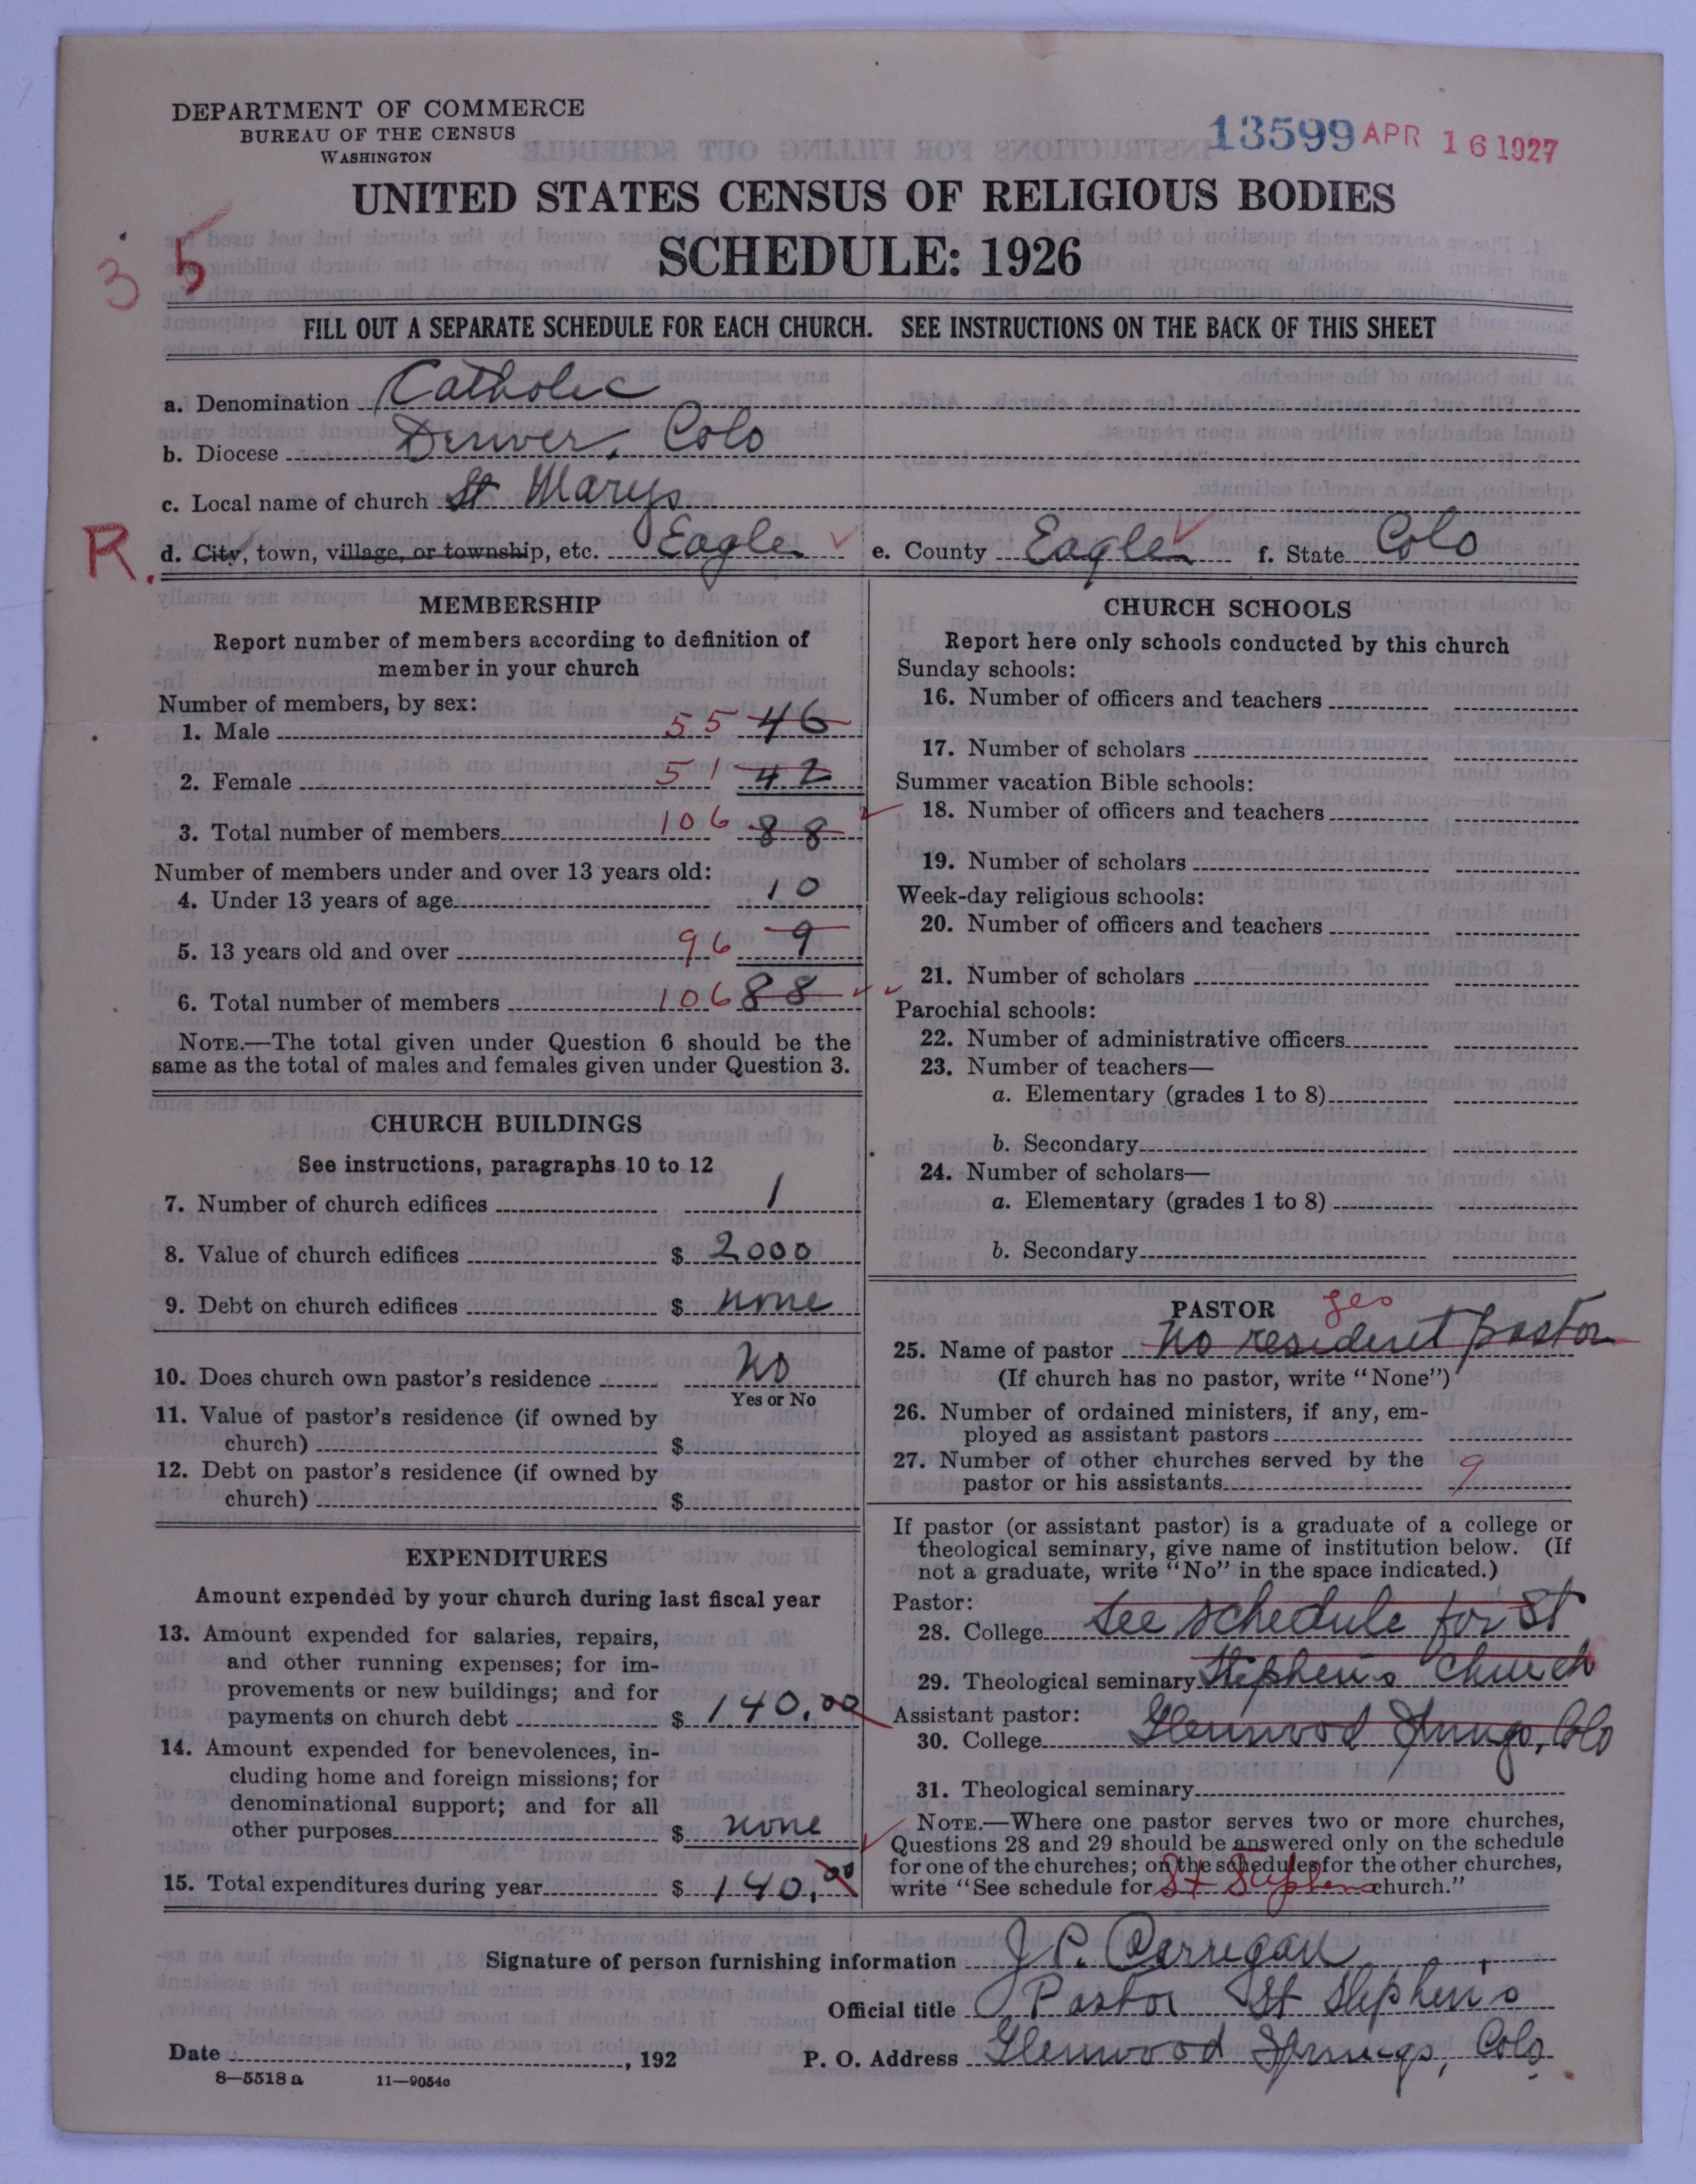 DEPARTMENT OF COMMERCE
BUREAU OF THE CENSUS
WASHINGTON
13599 APR 16 1927
UNITED STATES CENSUS OF RELIGIOUS BODIES
SCHEDULE: 1926
35
FILL OUT A SEPARATE SCHEDULE FOR EACH CHURCH. SEE INSTRUCTIONS ON THE BACK OF THIS SHEET
a. Denomination Catholic
b. Diocese Denver, Colo
c. Local name of church St Marys
R. d. City, town, village, or township, etc. Eagle e. County Eagle f. State Colo
MEMBERSHIP
Report number of members according to definition of
member in your church
Number of members, by sex:
1. Male 55 46
2. Female 51 42
3. Total number of members 106 88
Number of members under and over 13 years old:
4. Under 13 years of age 10
5. 13 years old and over 96 9
6. Total number of members 106 88
NOTE.—The total given under Question 6 should be the
same as the total of males and females given under Question 3.
CHURCH BUILDINGS
See instructions, paragraphs 10 to 12
7. Number of church edifices 1
8. Value of church edifices $ 2000
9. Debt on church edifices $ none
10. Does church own pastor's residence No
Yes or No
11. Value of pastor's residence (if owned by
church) $
12. Debt on pastor's residence (if owned by
church) $
EXPENDITURES
Amount expended by your church during last fiscal year
13. Amount expended for salaries, repairs,
and other running expenses; for im-
provements or new buildings; and for
payments on church debt $ 140.00
14. Amount expended for benevolences, in-
cluding home and foreign missions; for
denominational support; and for all
other purposes $ none
15. Total expenditures during year $ 140.00
CHURCH SCHOOLS
Report here only schools conducted by this church
Sunday schools:
16. Number of officers and teachers
17. Number of scholars
Summer vacation Bible schools:
18. Number of officers and teachers
19. Number of scholars
Week-day religious schools:
20. Number of officers and teachers
21. Number of scholars
Parochial schools:
22. Number of administrative officers
23. Number of teachers—
a. Elementary (grades 1 to 8)
b. Secondary
24. Number of scholars—
a. Elementary (grades 1 to 8)
b. Secondary
PASTOR yes
25. Name of pastor No resident pastor
(If church has no pastor, write "None")
26. Number of ordained ministers, if any, em-
ployed as assistant pastors
27. Number of other churches served by the
pastor or his assistants 9
If pastor (or assistant pastor) is a graduate of a college or
theological seminary, give name of institution below. (If
not a graduate, write "No" in the space indicated.)
Pastor:
28. College See schedule for St
29. Theological seminary Stephen's Church
Assistant pastor:
30. College Glenwood Springs, Colo
31. Theological seminary
NOTE.—Where one pastor serves two or more churches,
Questions 28 and 29 should be answered only on the schedule
for one of the churches; on the schedules for the other churches,
write "See schedule for St Stephens church."
Signature of person furnishing information J. P. Carrigan
Official title Pastor St Stephen's
Date , 192 P. O. Address Glenwood Springs, Colo.
8—5518 a 11—9054c